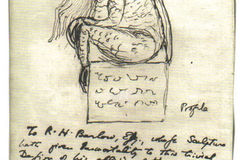 Profile
To R. H. Barlow, Esq., whose Sculpture
hath given Immortality to this trivial
Design of his